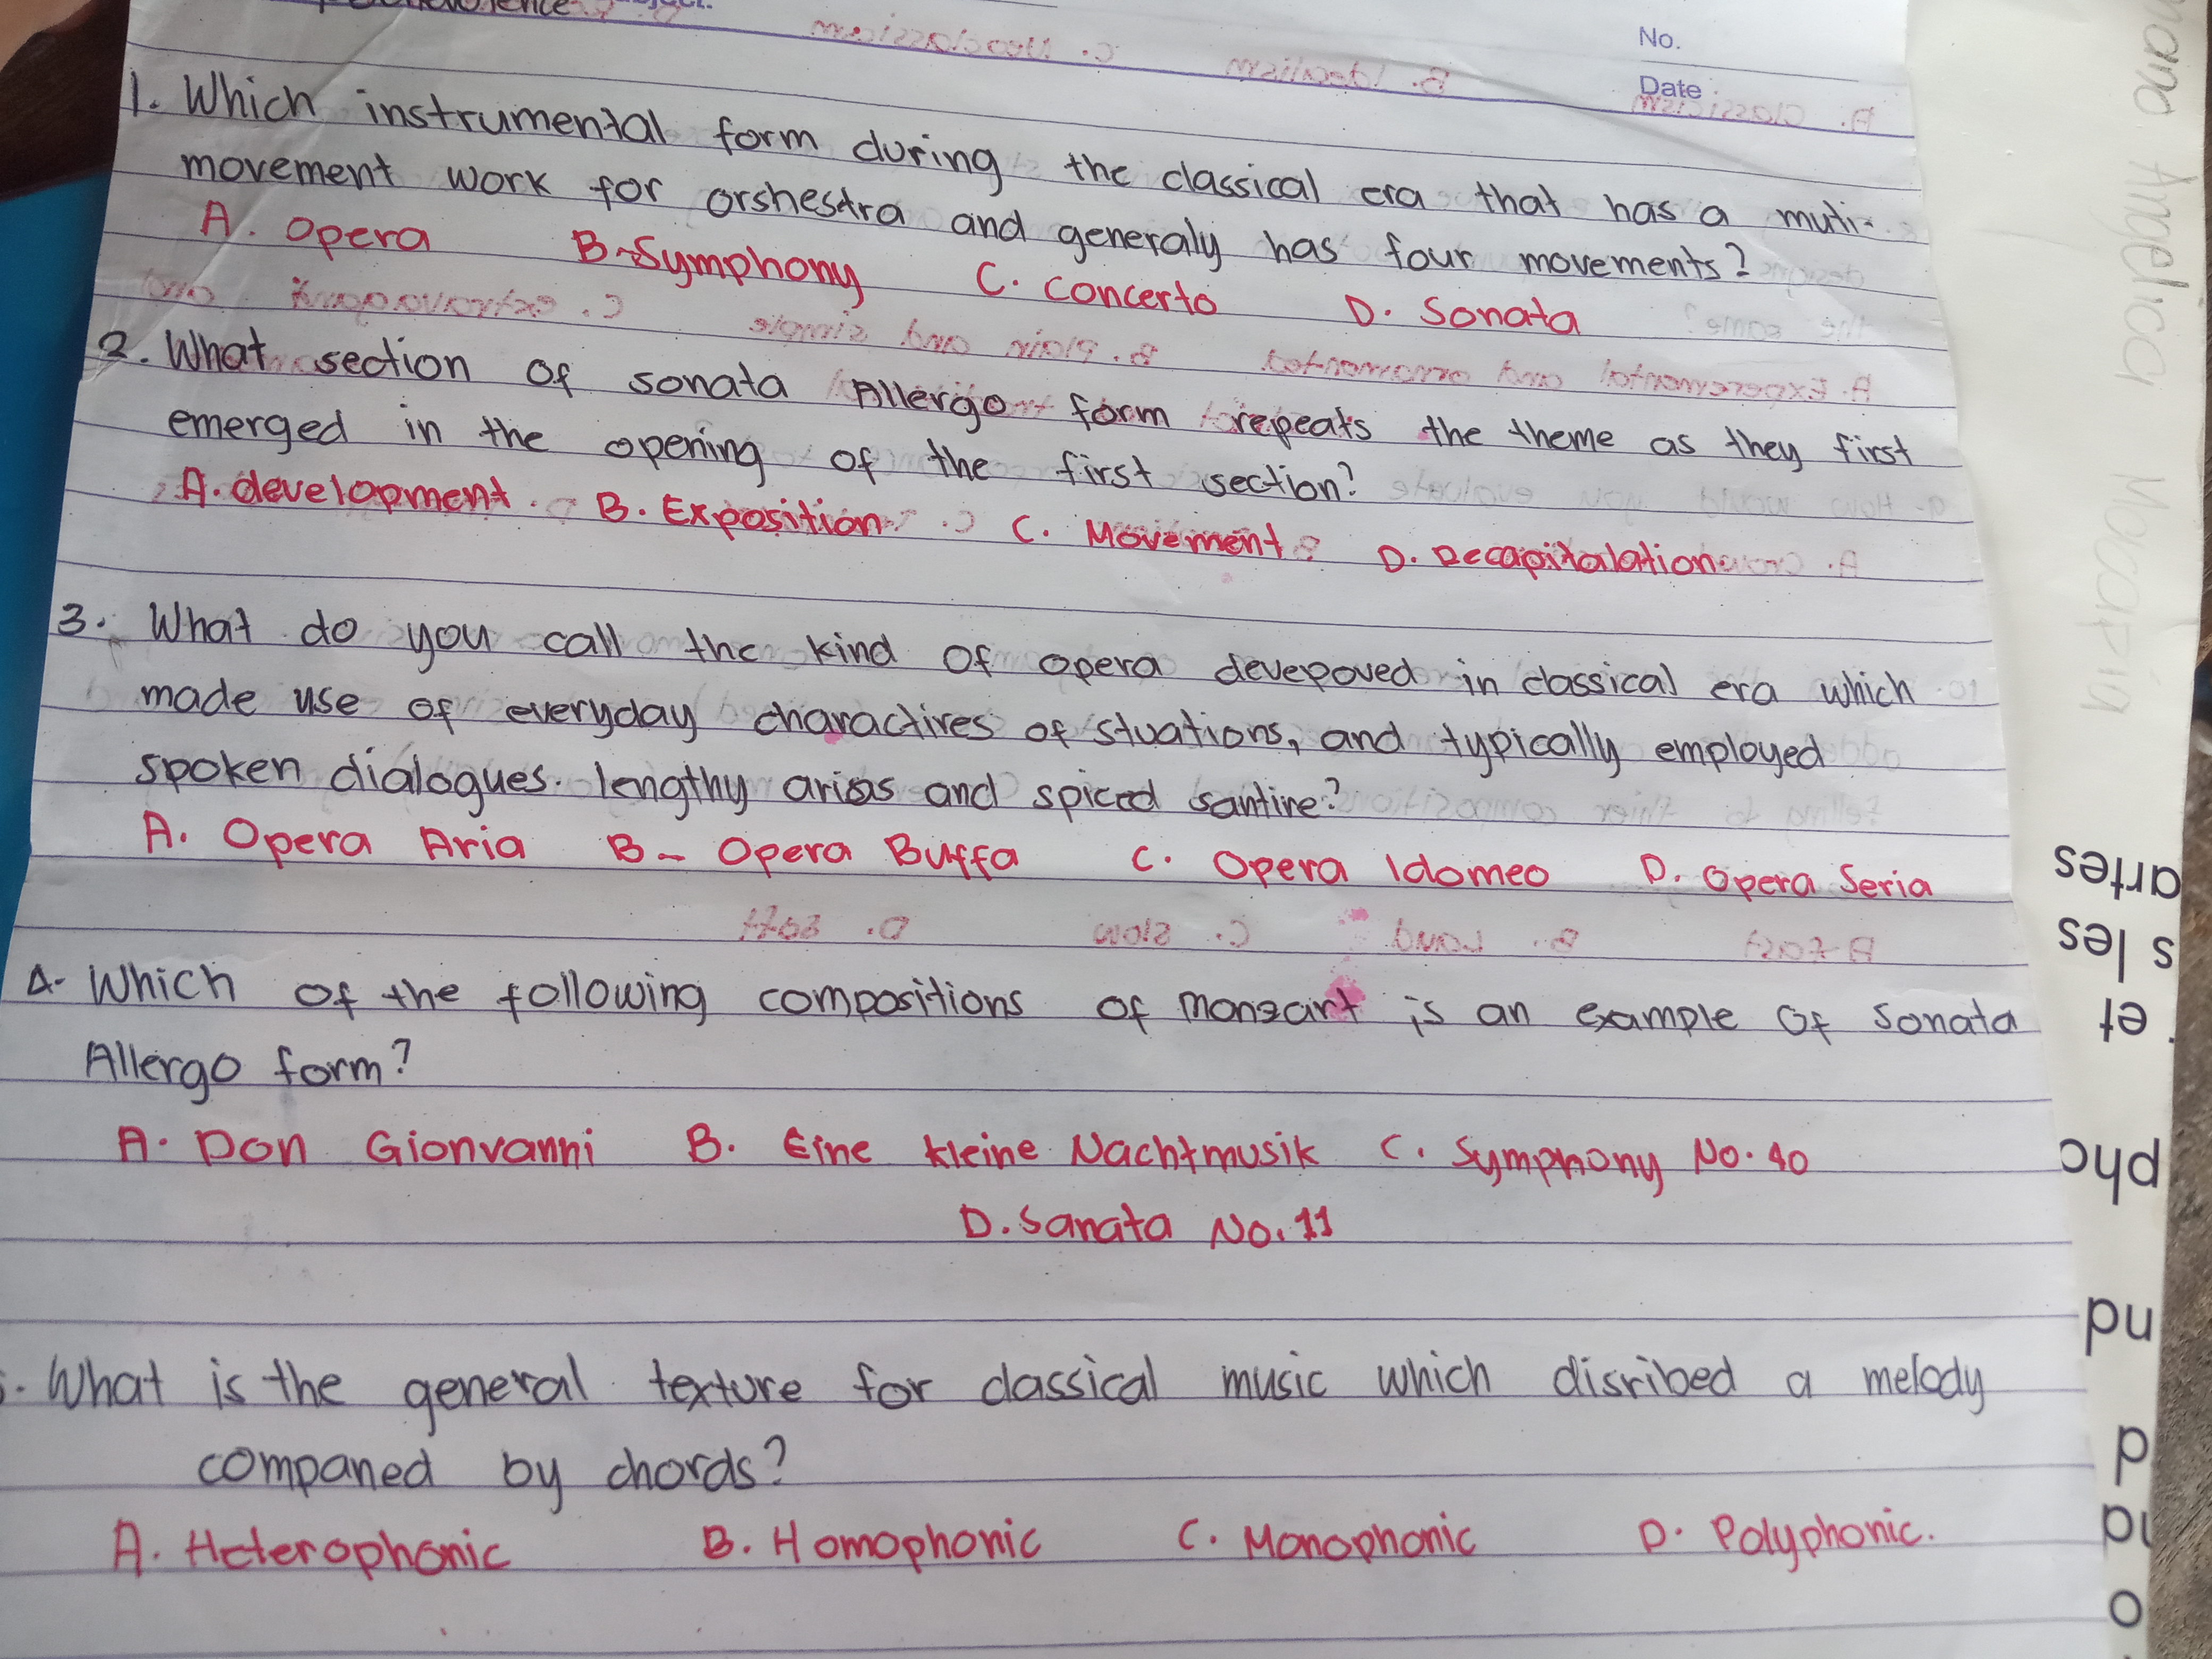 No.
Date
1. Which instrumental form during the classical era that has a muti-
movement work for orshestra and generaly has four movements?
A. Opera B. Symphony C. Concerto D. Sonata
2. What section of sonata Allergo form repeats the theme as they first
emerged in the opening of the first section?
A. development B. Exposition C. Movement D. Recapitalation
3. What do you call the kind of opera devepoved in classical era which
made use of everyday charactires of stuations, and typically employed
spoken dialogues. lengthy arias and spiced santire?
A. Opera Aria B- Opera Buffa C. Opera Idomeo D. Opera Seria
4. Which of the following compositions of monzart is an example of sonata
Allergo form?
A. Don Gionvanni B. Eine kleine Nachtmusik C. Symphony No. 40
D. Sanata No. 11
. What is the general texture for classical music which disribed a melody
companed by chords?
A. Heterophonic B. Homophonic C. Monophonic D. Polyphonic.
artes
s les
et
pho
nd
d